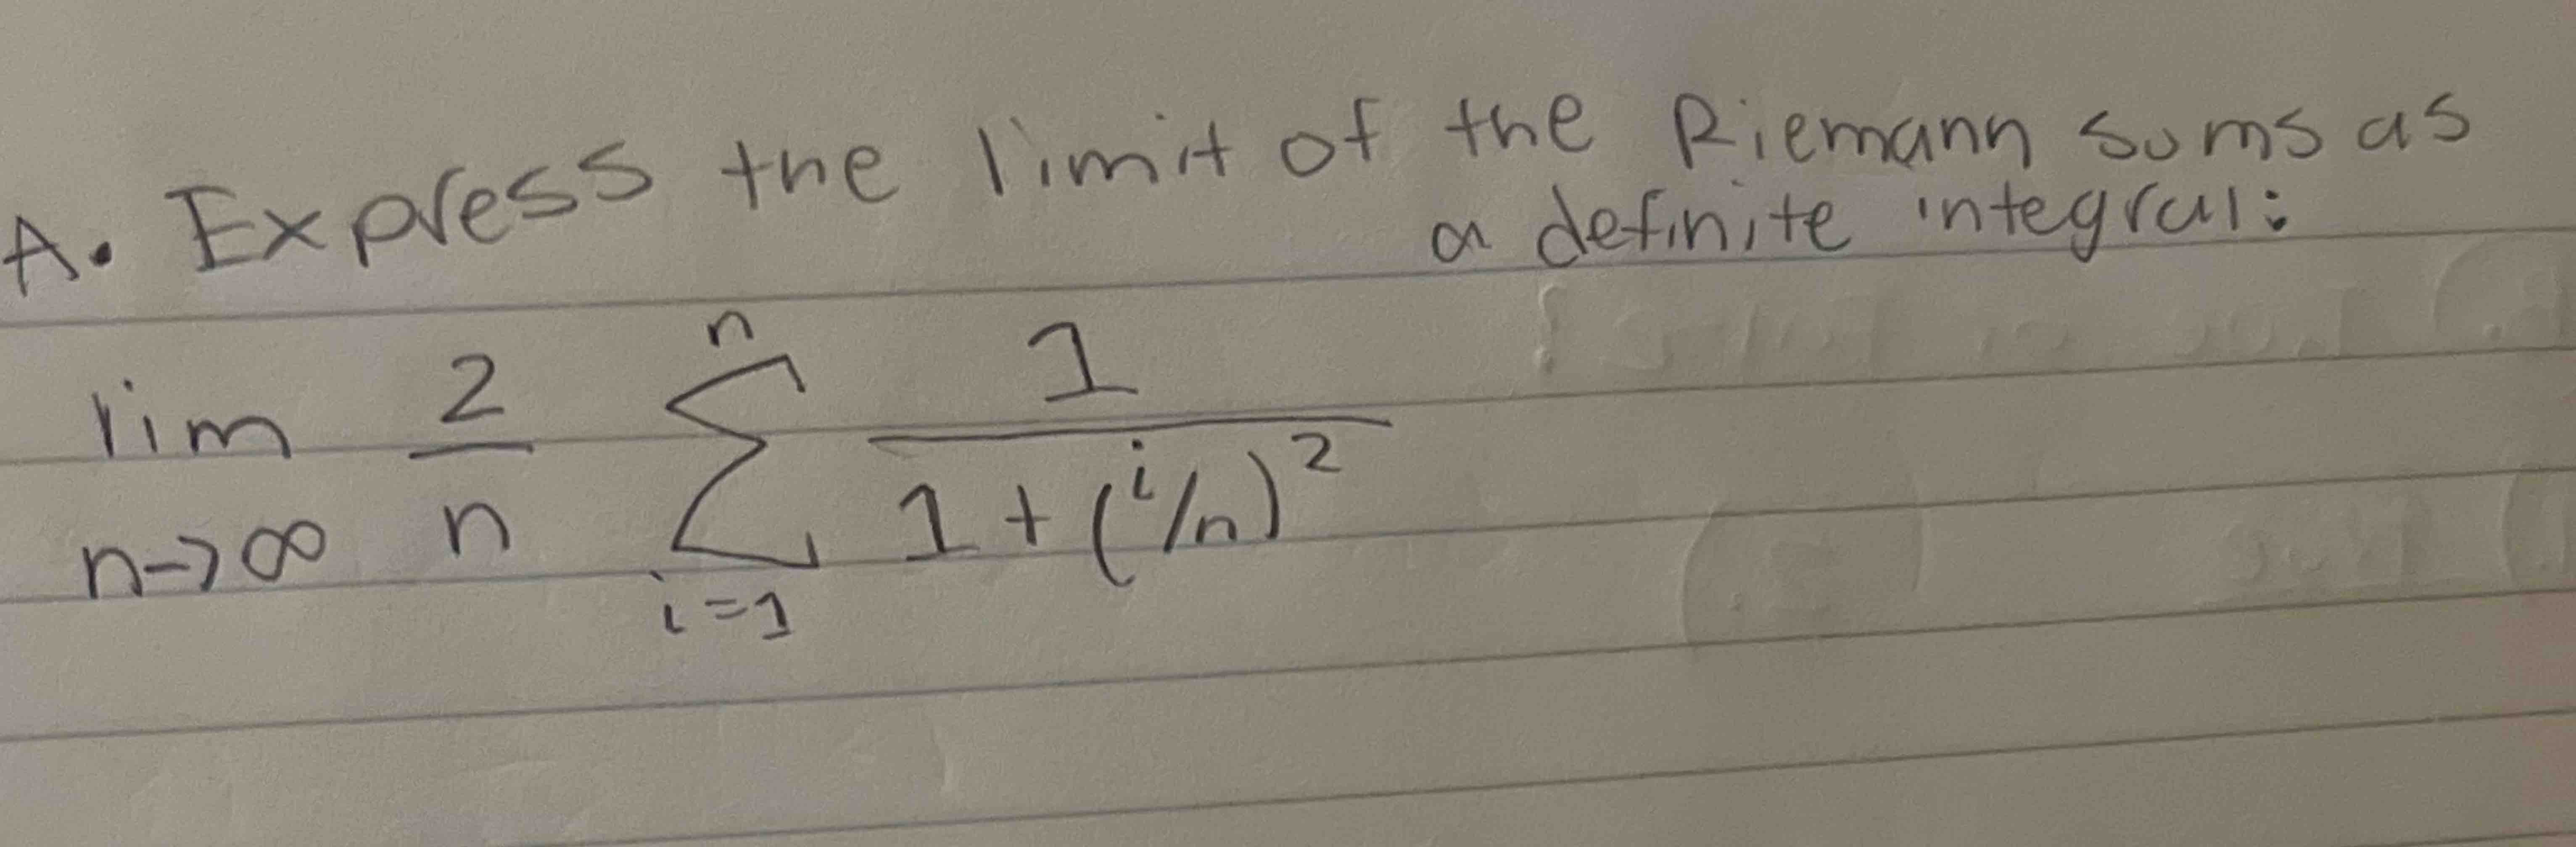 A. Express the limit of the Riemann sums as
a definite integral:
lim n→∞ 2/n n∑i=1 1/(1+(i/n)^2)